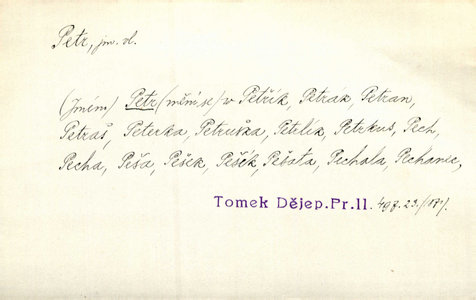 Petr, jm. vl.
(Jméno) Petr (mění se) v Petřík, Petrák, Petran,
Petraš, Peterka, Petruška, Petelík, Petrkus, Pech,
Pecha, Peša, Pešek, Pešík, Pešata, Pechala, Pechanec,
Tomek Děj​ep.Pr.II. 498. 23./